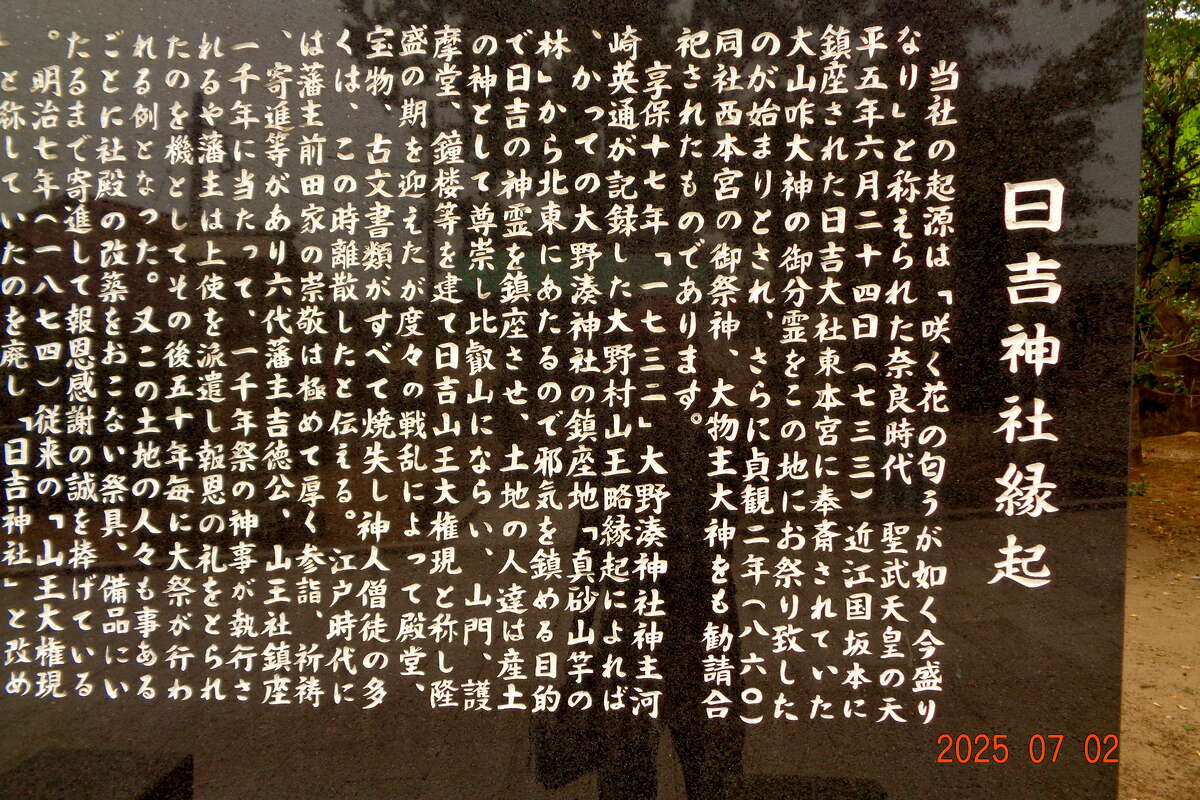 日吉神社縁起
当社の起源は「咲く花の匂うが如く今盛り
なり」と称えられた奈良時代 聖武天皇の天
平五年六月二十四日(七三三)近江国坂本に
鎮座された日吉大社東本宮に奉斎されていた
大山咋大神の御分霊をこの地にお祭り致した
のが始まりとされ、さらに貞観二年(八六〇)
同社西本宮の御祭神、大物主大神をも勧請合
祀されたものであります。
享保十七年「一七三二」大野湊神社神主河
崎英通が記録した大野村山王略縁起によれば
、かつての大野湊神社の鎮座地「真砂山竿の
林」から北東にあたるので邪気を鎮める目的
で日吉の神霊を鎮座させ、土地の人達は産土
の神として尊崇し比叡山にならい、山門、護
摩堂、鐘楼等を建て日吉山王大権現と称し隆
盛の期を迎えたが度々の戦乱によって殿堂、
宝物、古文書類がすべて焼失し神人僧徒の多
くは、この時離散したと伝える。江戸時代に
は藩主前田家の崇敬は極めて厚く参詣、祈祷
、寄進等があり六代藩主吉徳公、山王社鎮座
一千年に当たって、一千年祭の神事が執行さ
れるや藩主は上使を派遣し報恩の礼をとられ
たのを機としてその後五十年毎に大祭が行わ
れる例となった。又この土地の人々も事ある
ごとに社殿の改築をおこない祭具、備品にい
たるまで寄進して報恩感謝の誠を捧げている
。明治七年(一八七四)従来の「山王大権現
」と称していたのを廃し「日吉神社」と改め
2025 07 02